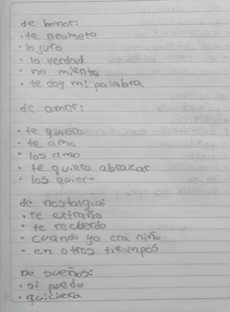 de honor:
· te prometo
· lo juro
· la verdad
· no miento
· te doy mi palabra
de amor:
· te quiero
· te amo
· los amo
· te quiero abrazar
· los quiero
de nostalgia:
· te extraño
· te recuerdo
· cuando yo era niño
· en otros tiempos
De sueños:
· si puedo
· quisiera